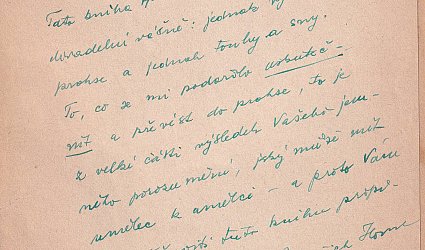 Tato kniha
divadelní vášně: jednak
prakse a jednak touhy a sny.
To, co se mi podařilo uskuteč-
nit a převést do prakse, to je
z velké části výsledek Vašeho jem-
ného porozumění, jaký může mít
umělec k umělci – a proto Vám
tuto knihu připi-